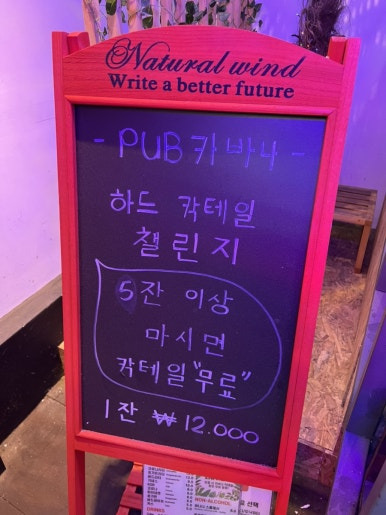 Natural wind
Write a better future
- PUB 카바나 -
하드 칵테일
챌린지
5잔 이상
마시면
칵테일 "무료"
1잔 ₩ 12.000
NON-ALCOHOL